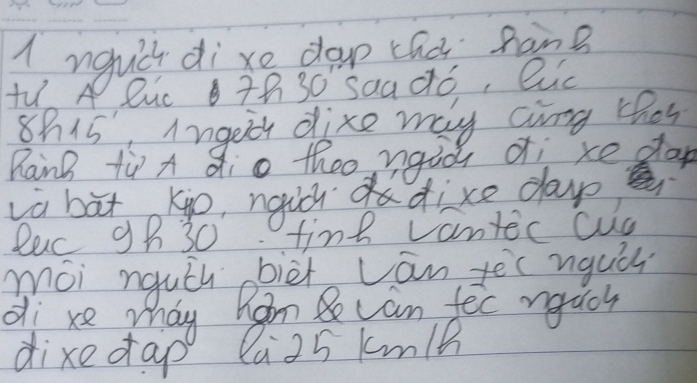 1 người đi xe đạp khởi hành
từ A lúc 7h30' sau đó, lúc
8h15', 1 người đi xe máy cũng khởi
hành từ A đi theo người đi xe đạp
và bắt kịp, người đã đi xe đạp,
lúc 9h30. tính vận tốc của
mỗi người biết vận tốc người
đi xe máy hơn vận tốc người
đi xe đạp là 25 km/h